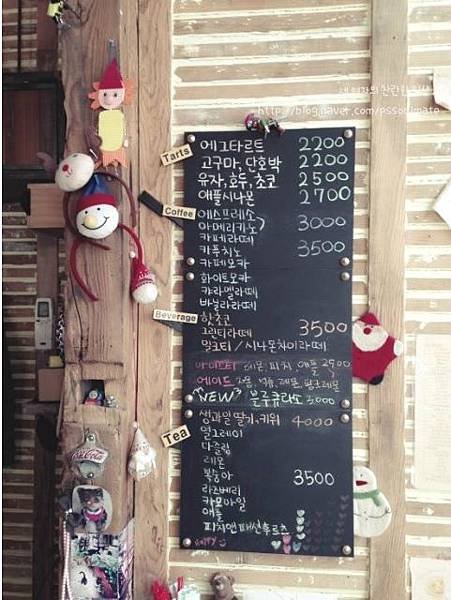 http://blog.naver.com/pssolimate
Tarts
에그타르트 2200
고구마, 단호박 2200
유자, 호두, 초코 2500
애플시나몬 2700
Coffee
에스프레소
아메리카노 3000
카페라떼
카푸치노 3500
카페모카
화이트모카
캬라멜라떼
바닐라라떼
Beverage
핫초코
그린티라떼 3500
밀크티 / 시나몬차이라떼
아이스티 레몬, 피치, 애플 2500
에이드 자몽, 레몬,
NEW 블루큐라소 3000
Tea
생과일 딸기, 키위 4000
얼그레이
다즐링
레몬
복숭아 3500
라즈베리
카모마일
애플
피치앤패션후르츠
HAPPY
Coca-Cola